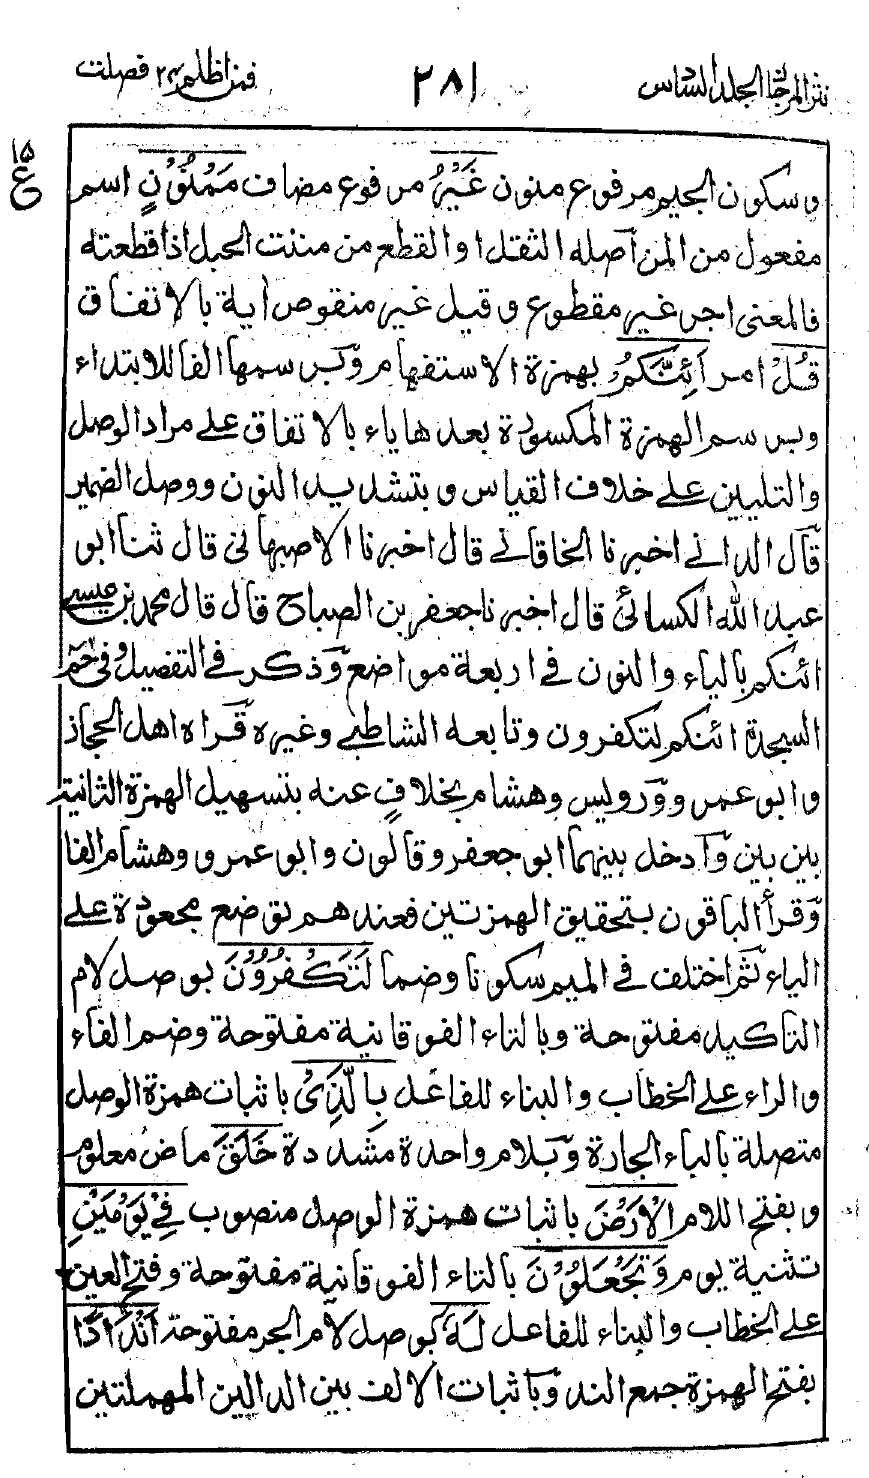 نثر المرجان المجلد السادس
٢٨١
فمن اظلم ٢٤ فصلت
١٥
ع
وسكون الجيم مرفوع منون غَيْرُ مرفوع مضاف مَمْنُوْنٍ اسم
مفعول من المن أصله الثقل او القطع من مننت الحبل اذا قطعته
فالمعنى اجر غير مقطوع وقيل غير منقوص أية بالاتفاق
قُلْ امر أَئِنَّكُمْ بهمزة الاستفهام وبرسمها الفا للابتداء
وبرسم الهمزة المكسورة بعدها ياء بالاتفاق على مراد الوصل
والتليين على خلاف القياس وبتشديد النون ووصل الضمير
قال الداني اخبرنا الخاقاني قال اخبرنا الاصبهاني قال ثنا ابو
عبد الله الكسائي قال اخبرنا جعفر بن الصباح قال قال محمد بن عيسى
ائنكم بالياء والنون في اربعة مواضع وذكر في التفصيل وفى حم
السجدة ائنكم لتكفرون وتابعه الشاطبي وغيره قرأه اهل الحجاز
وابو عمرو ورويس وهشام بخلافٍ عنه بتسهيل الهمزة الثانية
بين بين وأدخل بينهما ابو جعفر وقالون وابو عمرو وهشام الفا
وقرأ الباقون بتحقيق الهمزتين فعندهم توضع مجعودة على
الياء ثم اختلف في الميم سكونا وضما لَتَكْفُرُوْنَ بوصل لام
التاكيد مفتوحة وبالتاء الفوقانية مفتوحة وضم الفاء
والراء على الخطاب والبناء للفاعل بِالَّذِيْ باثبات همزة الوصل
متصلة بالباء الجارة وبلام واحدة مشددة خَلَقَ ماض معلوم
وبفتح اللام الْاَرْضَ باثبات همزة الوصل منصوب فِيْ يَوْمَيْنِ
تثنية يوم وَتَجْعَلُوْنَ بالتاء الفوقانية مفتوحة وفتح العين
على الخطاب والبناء للفاعل لَهٗ بوصل لام الجر مفتوحة اَنْدَادًا
بفتح الهمزة جمع الند وباثبات الالف بين الدالين المهملتين